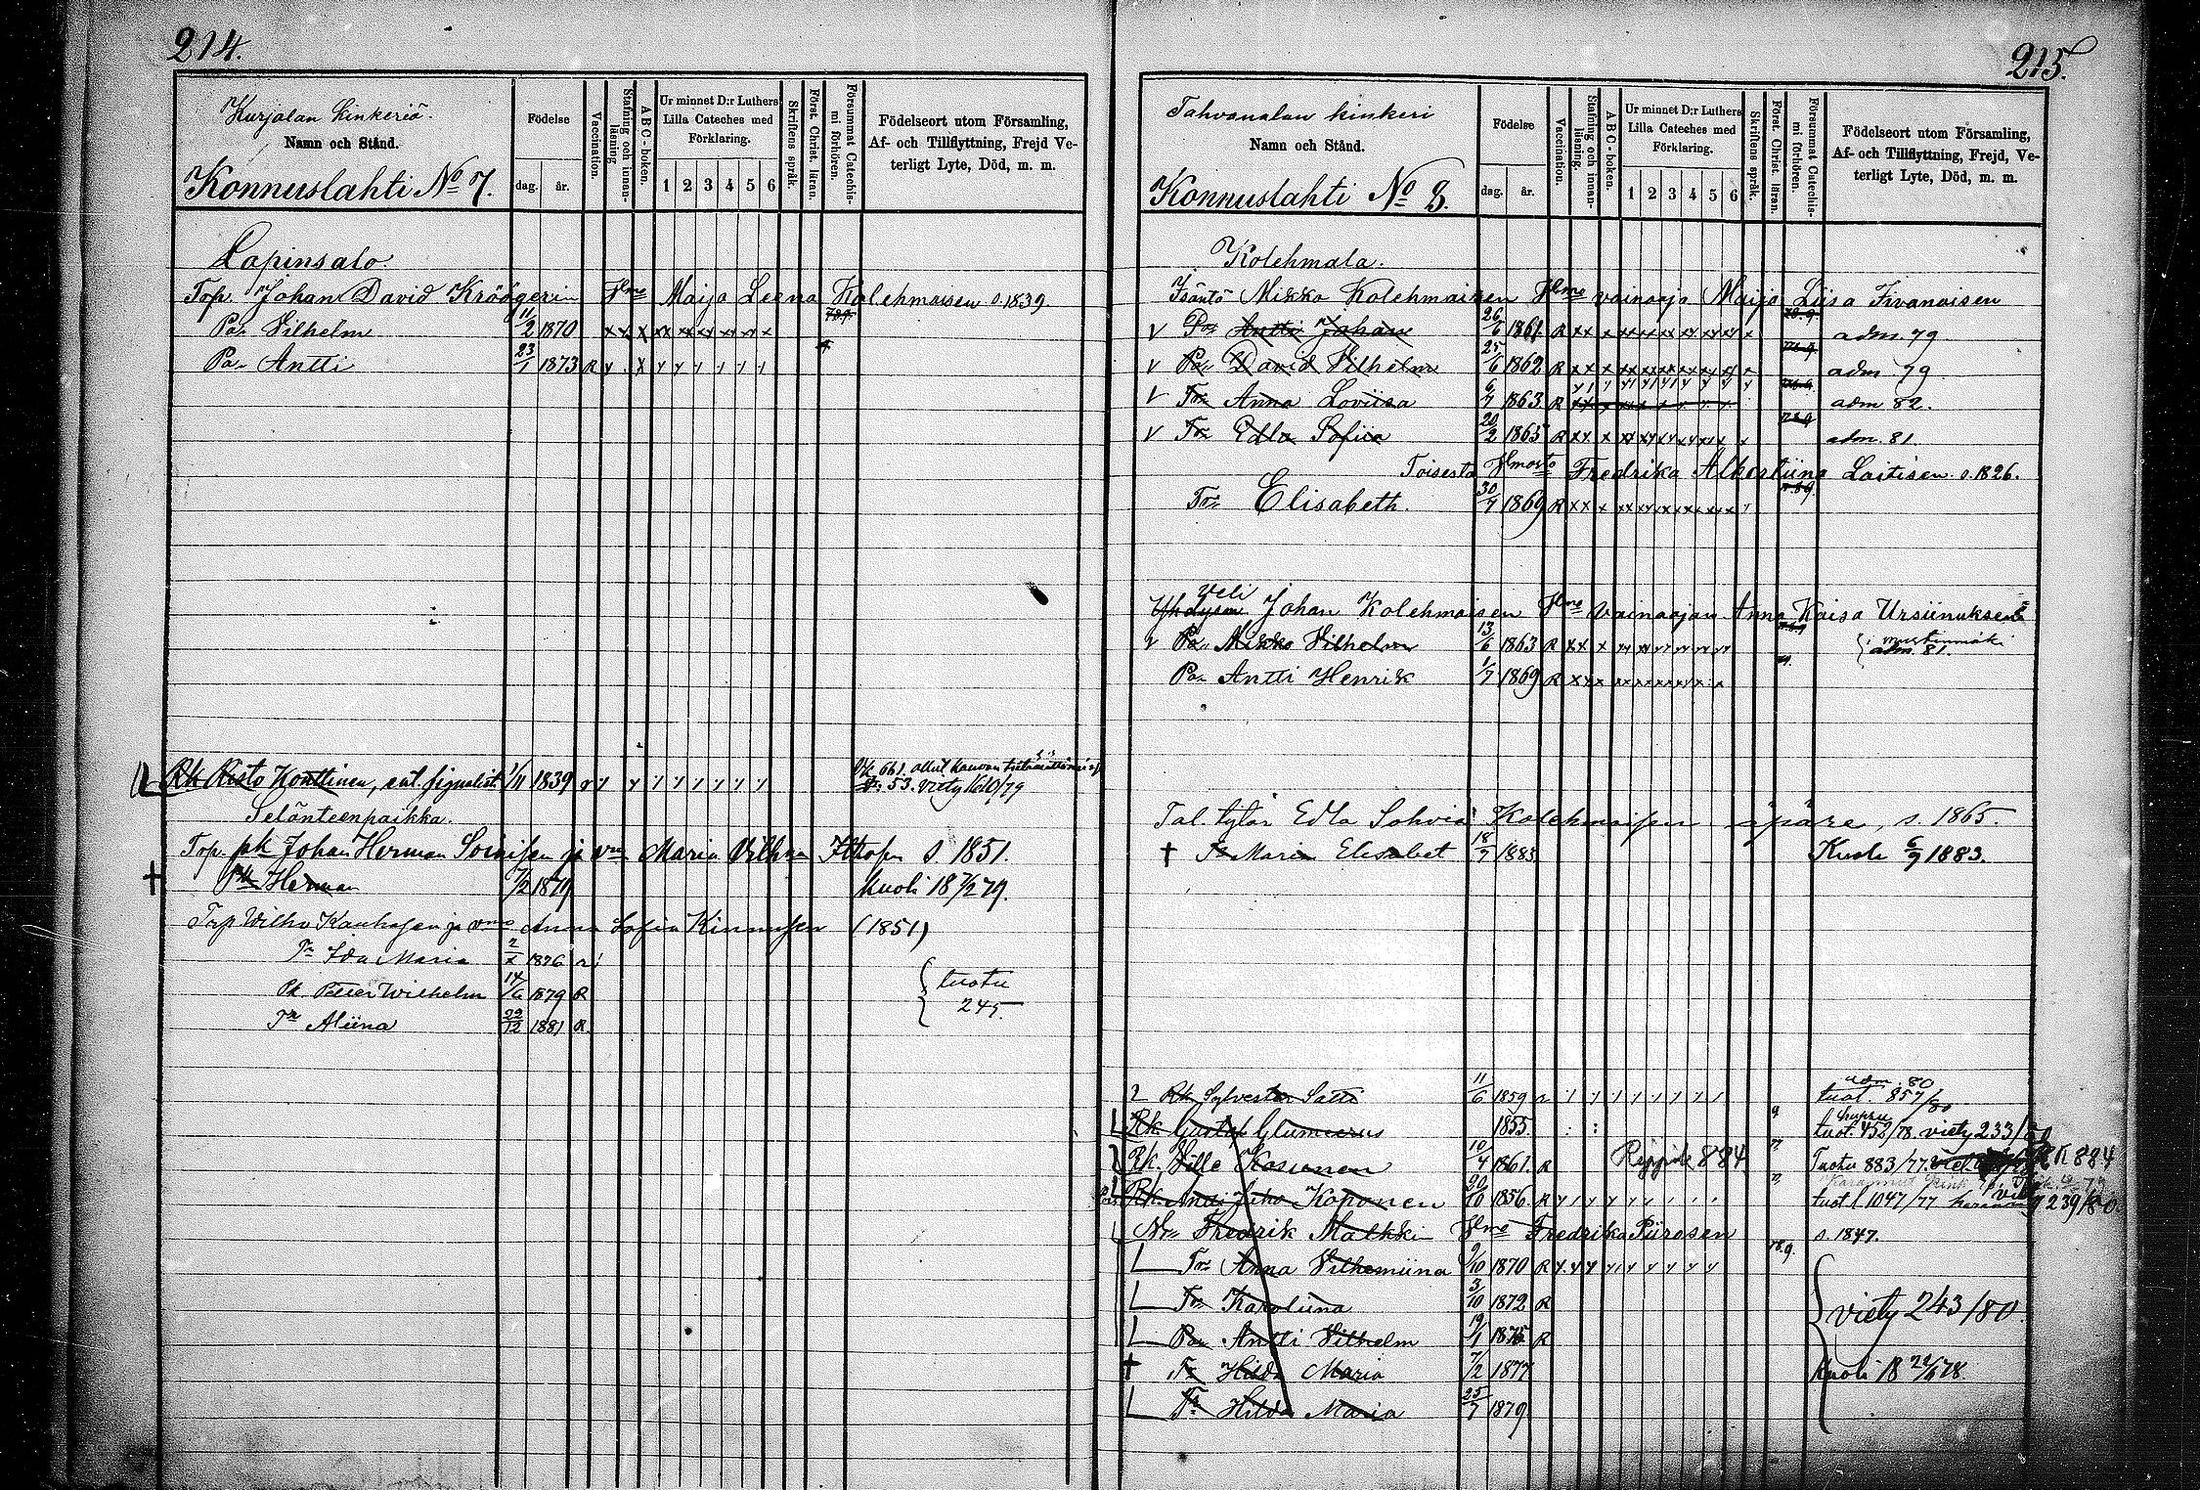 214.
Kurjalan kinkeriä.
Namn och Stånd.
Konnuslahti No 7.
Födelse
dag. år.
Vaccination.
Stafning och innan-läsning
ABC-boken.
Ur minnet D:r Luthers Lilla Cateches med Förklaring.
1 2 3 4 5 6
Skriftens språk.
Först. Christ. läran.
Försummat Catechis-mi förhören.
Födelseort utom Församling, Af- och Tillflyttning, Frejd Ve-terligt Lyte, Död, m. m.
Lapinsalo.
Top. Johan David Krögerin Hmo Maija Leena Kolehmassen s. 1839.
Po- Vilhelm 11/2 1870 x x x x x x x x x
Po- Antti 23/1 1873 R
Rk Risto Konttinen, ent. signalist. 1/11 1839 53. viety 1610/79
Selönteenpaikka.
Top. pk Johan Herman Soinisen ja vm Maria Vilh s. 1851.
† Pk Herman 1/2 1879 kuoli 18 7/2 79.
Top Wilho Kauhasen ja vmo Anna Sofia Kinnusen (1851)
Tr Ida Maria 2/x 1876
Pk Petter Wilhelm 14/6 1879 R
Tr Aliina 22/12 1881 R.
tuotu 245.
215.
Tahvanalan kinkeri
Namn och Stånd.
Konnuslahti No 8.
Födelse
dag. år.
Vaccination.
Stafning och innan-läsning.
ABC-boken.
Ur minnet D:r Luthers Lilla Cateches med Förklaring.
1 2 3 4 5 6
Skriftens språk.
Först. Christ. läran.
Försummat Catechis-mi förhören.
Födelseort utom Församling, Af- och Tillflyttning, Frejd, Ve-terligt Lyte, Död, m. m.
Kolehmala.
Isäntä Mikko Kolehmaisen Hmo vainaaja Maija Liisa Tirvanaisen
v Po- Antti Johan 26/6 1861 R adm. 79
v Po- David Vilhelm 25/6 1862 R adm 79
v Tr- Anna Loviisa 6/7 1863 R adm 82.
v Tr- Edla Sofiia 20/2 1865 R adm. 81.
Toisesta Hmosta Fredrika Albertiina Laitisen s. 1826.
Tr- Elisabeth. 30/7 1869 R
veli
Yhdysm Johan Kolehmaisen Hmo vainaajan Anna Kaisa Ursiinuksen
v Po- Mikko Vilhelm 13/6 1863 R adm. 81.
Po- Antti Henrik 1/7 1869 R
Tal. tytär Edla Sohvia Kolehmaisen äpärä, s. 1865.
† Tr Maria Elisabet 18/7 1883 Kuoli 6/9 1883.
adm. 80
2 Rk Sylvester Sätti 11/6 1859 tuot. 857/80
Rk Gustaf Glumerus 1855. tuot. 452/78. viety 233/80
Rk. Ville Kosunen 10/4 1861. R Rippik 884 Tuotu 883/77.
Rk. Antti Juho Koponen 20/10 1856. R tuot. 1047/77 239/80.
Mr- Fredrik Matkki Hmo Fredrika Piirosen s. 1847.
Tr- Anna Vilhemiina 9/10 1870 R
Tr- Karoliina 3/10 1872 R
viety 243/80.
Po- Antti Vilhelm 19/1 1875 R
† Tr Hilda Maria 7/2 1877 kuoli 18 78.
Tr Hilda Maria 25/7 1879.